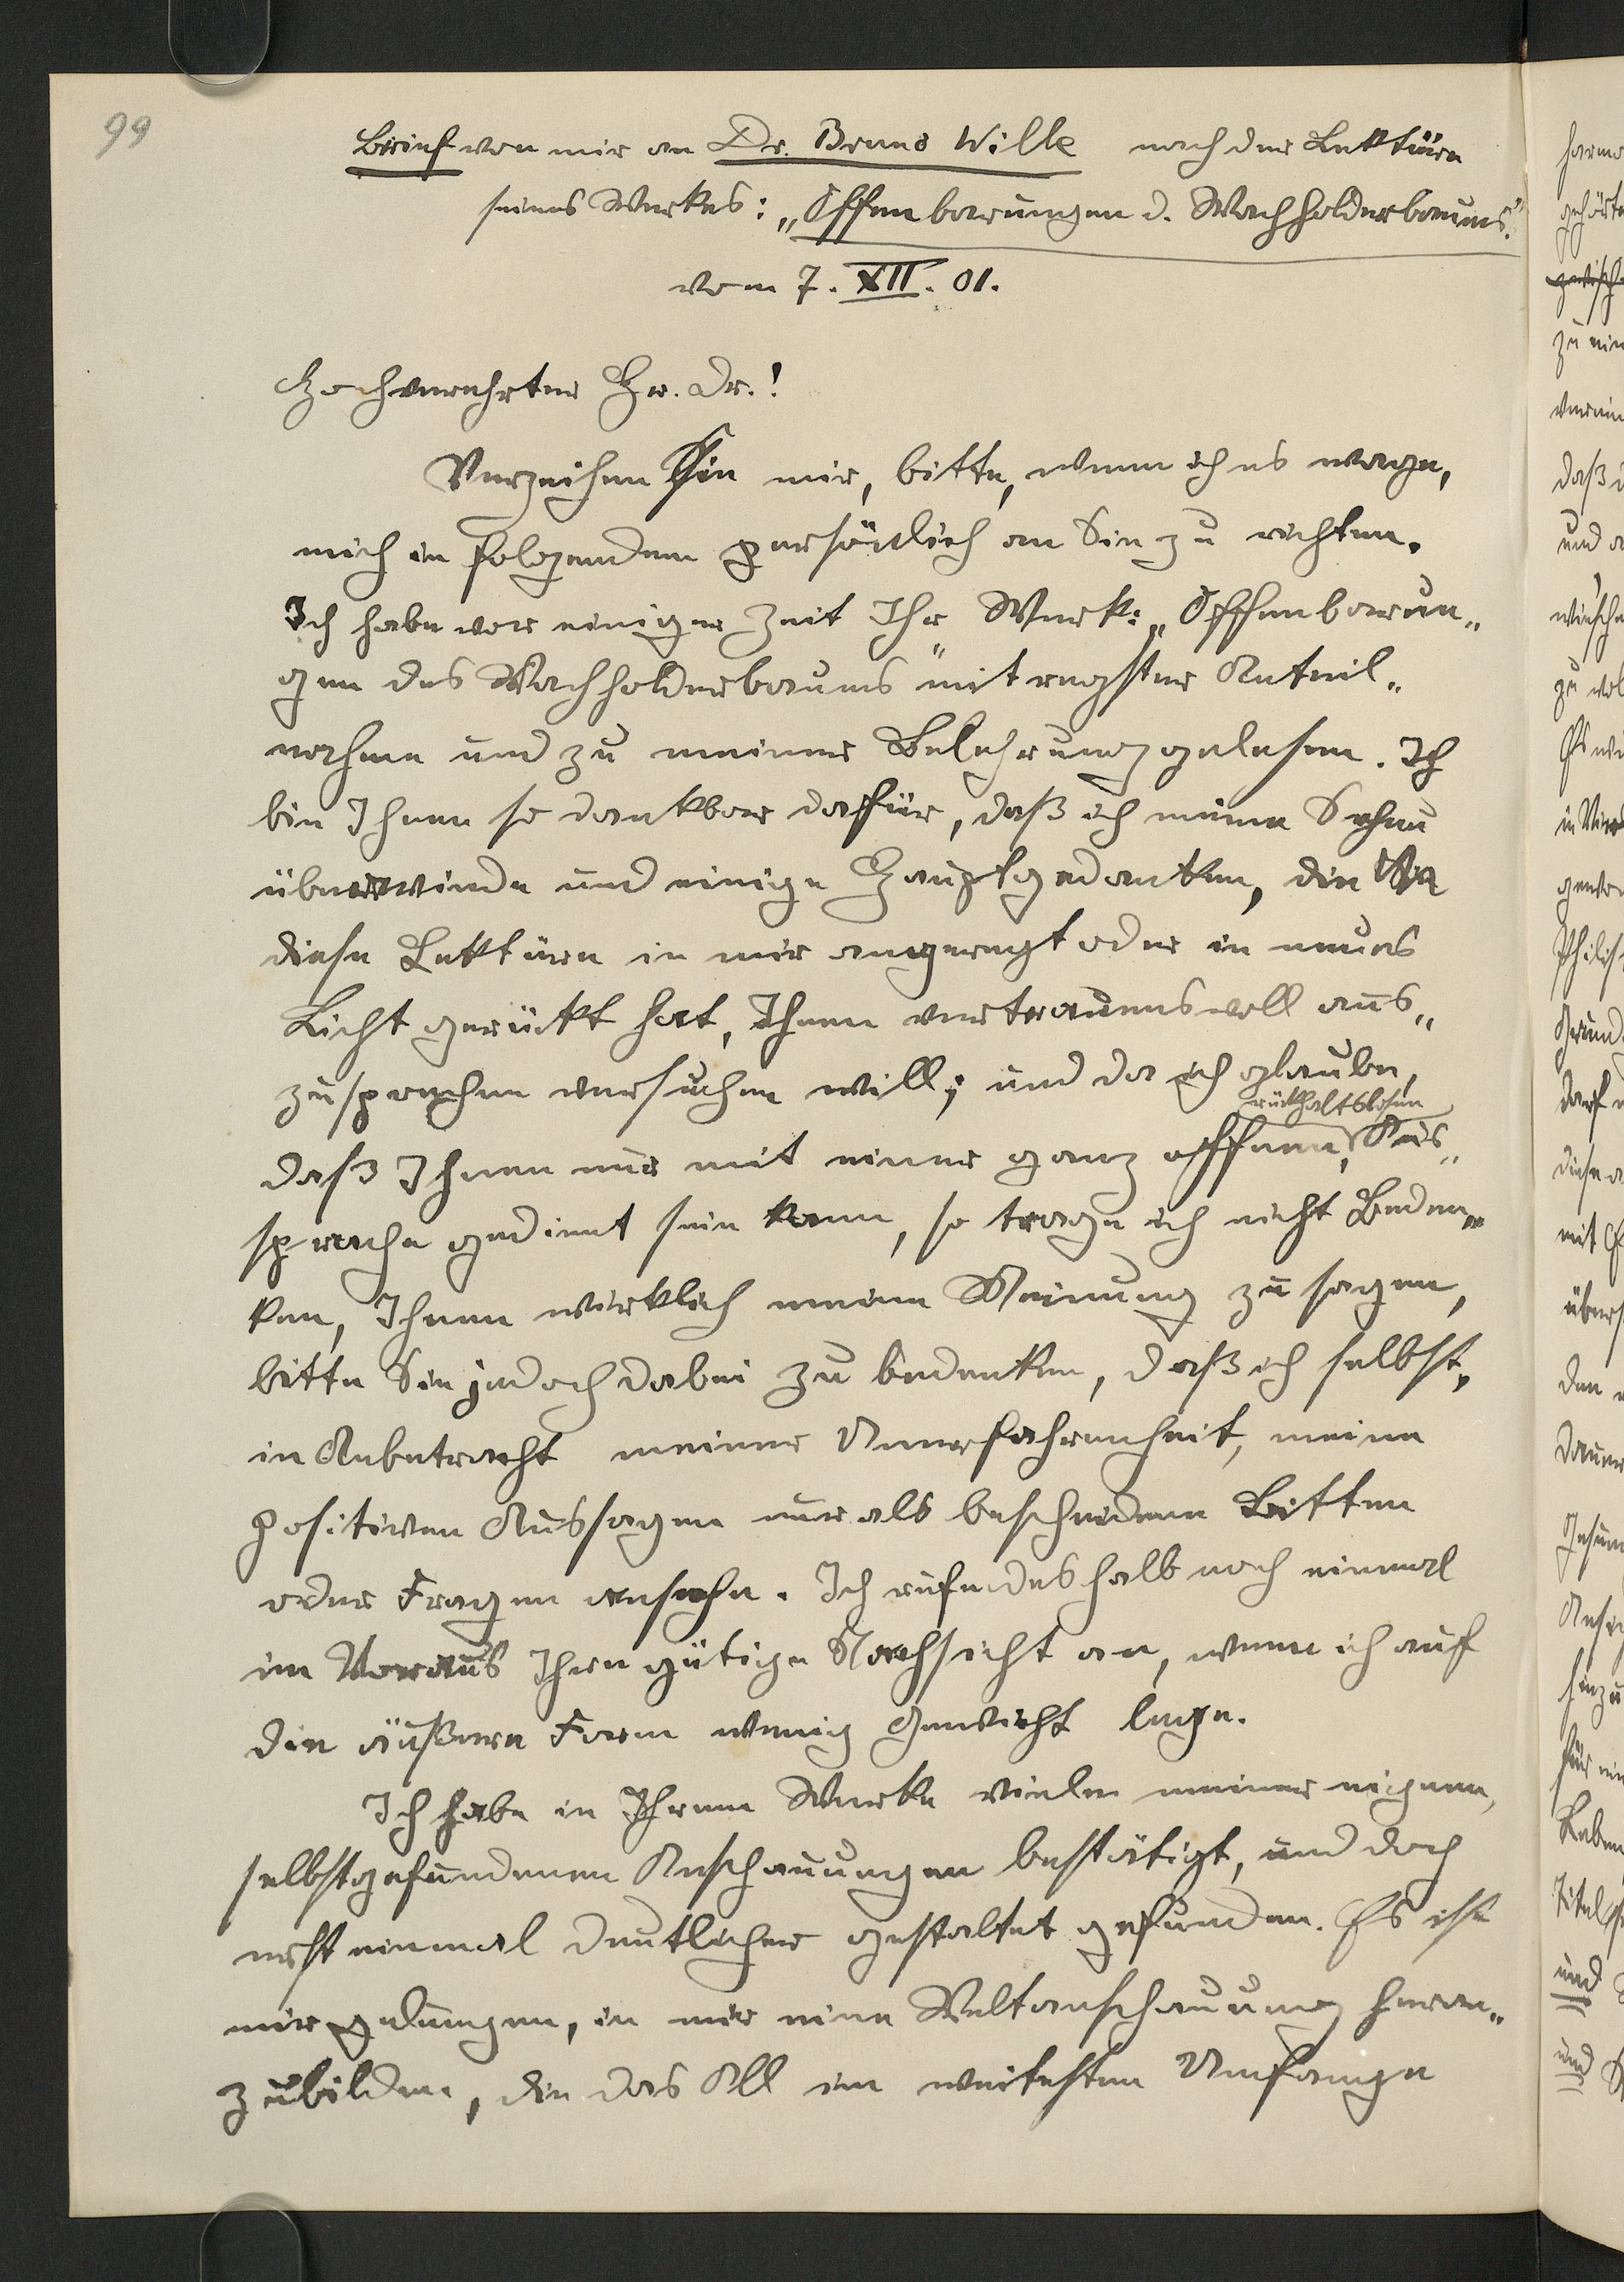 99
Brief von mir an Dr. Bruno Wille nach der Lektüre
seines Werkes: „Offenbarungen d. Wachholderbaums."
vom 7. XII. 01.
Hochverehrter Hr. Dr.!
Verzeihen Sie mir, bitte, wenn ich es wage,
mich in folgendem persönlich an Sie zu richten.
Ich habe vor einiger Zeit Ihr Werk: „Offenbarun„
gen des Wachholderbaums" mit regster Anteil„
nahme und zu meiner Belehrung gelesen. Ich
bin Ihnen so dankbar dafür, daß ich meine Scheu
überwinde und einige Hauptgedanken, die
diese Lektüre in mir angeregt oder in neues
Licht gerückt hat, Ihnen vertrauensvoll aus„
zusprechen versuchen will; und da ich glaube,
rückhaltslosen
daß Ihnen nur mit einer ganz offenen, Aus„
sprache gedient sein kann, so trage ich nicht Beden„
ken, Ihnen wirklich meine Meinung zu sagen,
bitte Sie jedoch dabei zu bedenken, daß ich selbst,
in Anbetracht meiner Unerfahrenheit, meine
positiven Aussagen nur als bescheidene Bitten
oder Fragen ansehe. Ich rufe deshalb noch einmal
im Voraus Ihre gütige Nachsicht an, wenn ich auf
die äußere Form wenig Gewicht lege.
Ich habe in Ihrem Werke viele meiner eigenen,
selbstgefundenen Anschauungen bestätigt, und doch
erst einmal deutlicher gestaltet gefunden. Es ist
mir gelungen, in mir eine Weltanschauung heran„
zubilden, die das All im weitesten Umfange